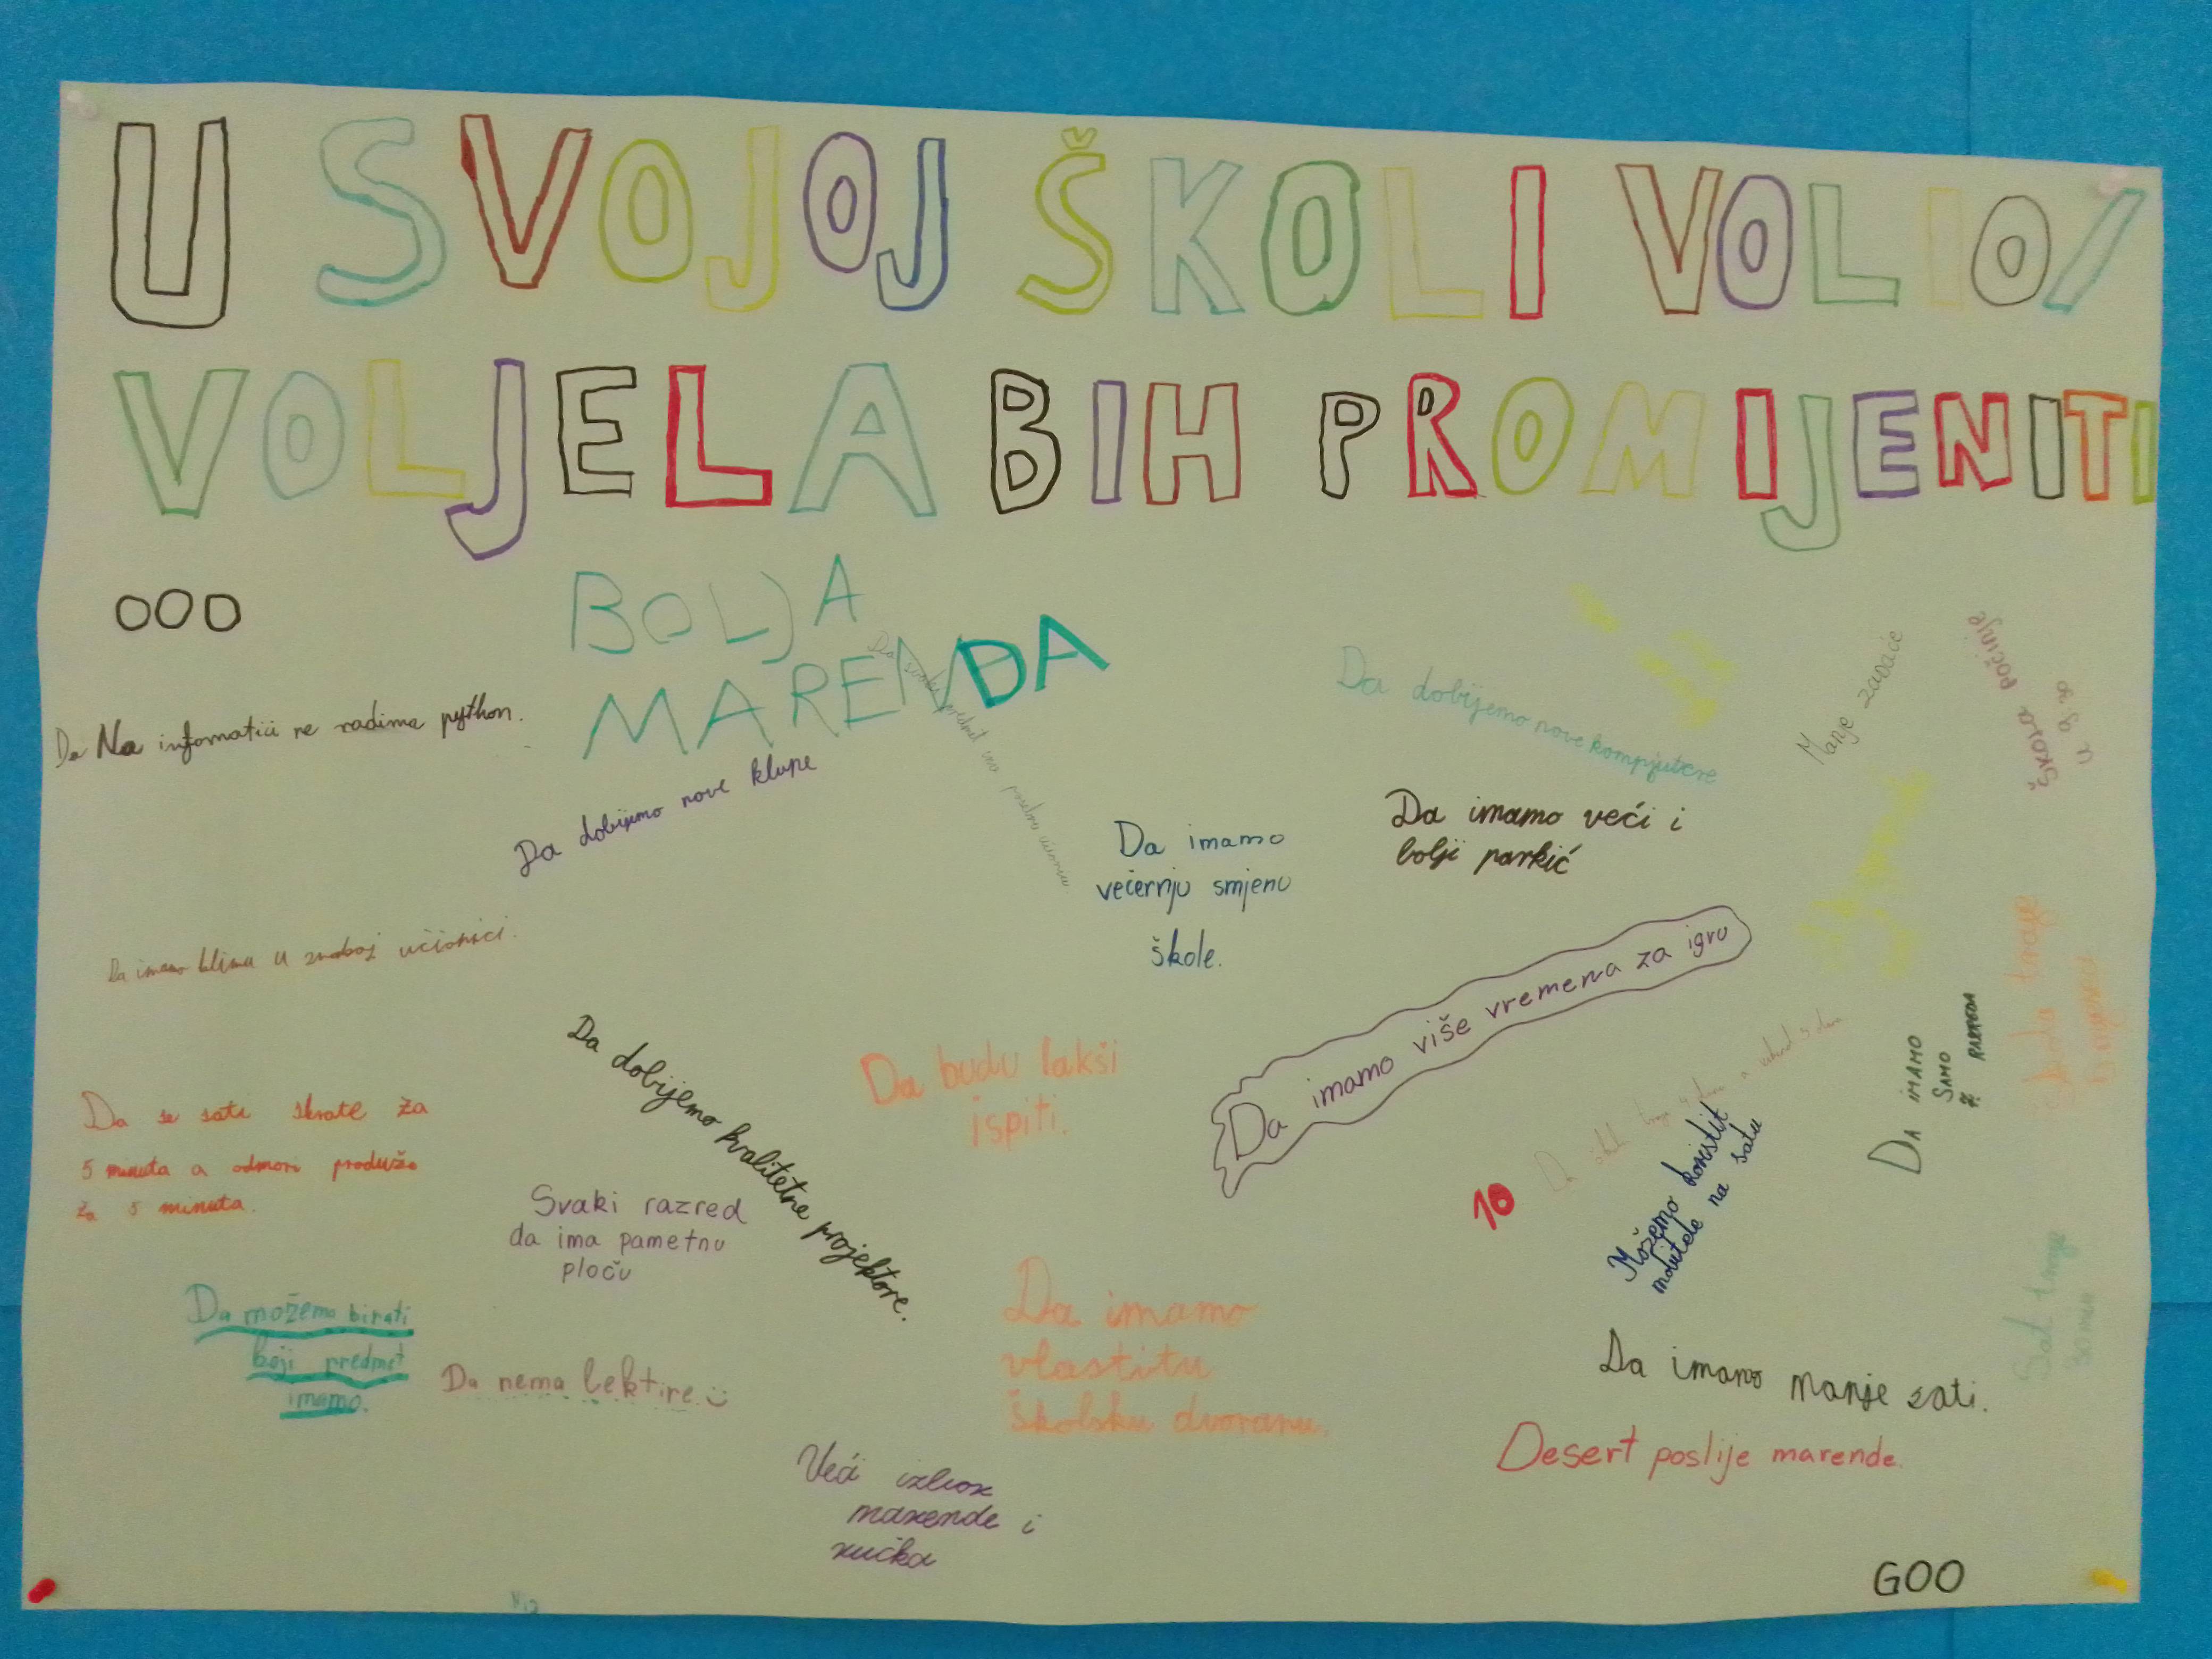 U SVOJOJ ŠKOLI VOLIO/
VOLJELA BIH PROMIJENITI
OOO
BOLJA
MARENDA
Da Na infomatici ne radimo python.
Da dobijemo nove klupe
Da svaki predmet ima posebnu učionicu
Da dobijemo nove kompjutere
Manje zadaće
Škola počinje
u 9:30
Da imamo veći i
bolji parkić
Da imamo
večernju smjenu
škole.
Da imamo klimu u svakoj učionici.
Da imamo više vremena za igru
Da se sati skrate za
5 minuta a odmori produže
za 5 minuta.
Da dobijemo kvalitetne projektore.
Da budu lakši
ispiti.
Svaki razred
da ima pametnu
ploču
10
Možemo koristit
mobitele na satu
DA IMAMO
SAMO
7. RAZREDA
Škola traje
Sat traje
Da možemo birati
koji predmet
imamo.
Da nema lektire
Da imamo
vlastitu
školsku dvoranu.
Da imamo manje sati.
Desert poslije marende.
Veći izbor
marende i
ručka
GOO